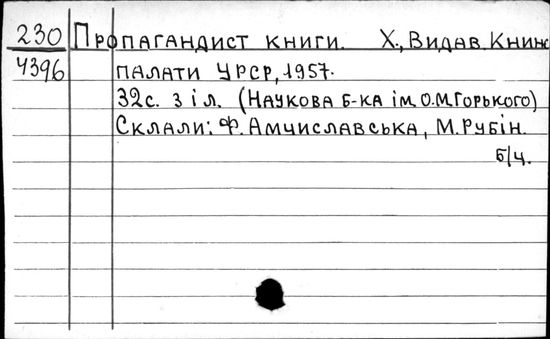 230 Пропагандист книги. Х., Видав. Книжк
4396 палати УРСР, 1957.
32с. з іл. (Наукова б-ка ім. О.М. Горького)
Склали: Ф. Амчиславська, М. Рубін.
б/ч.